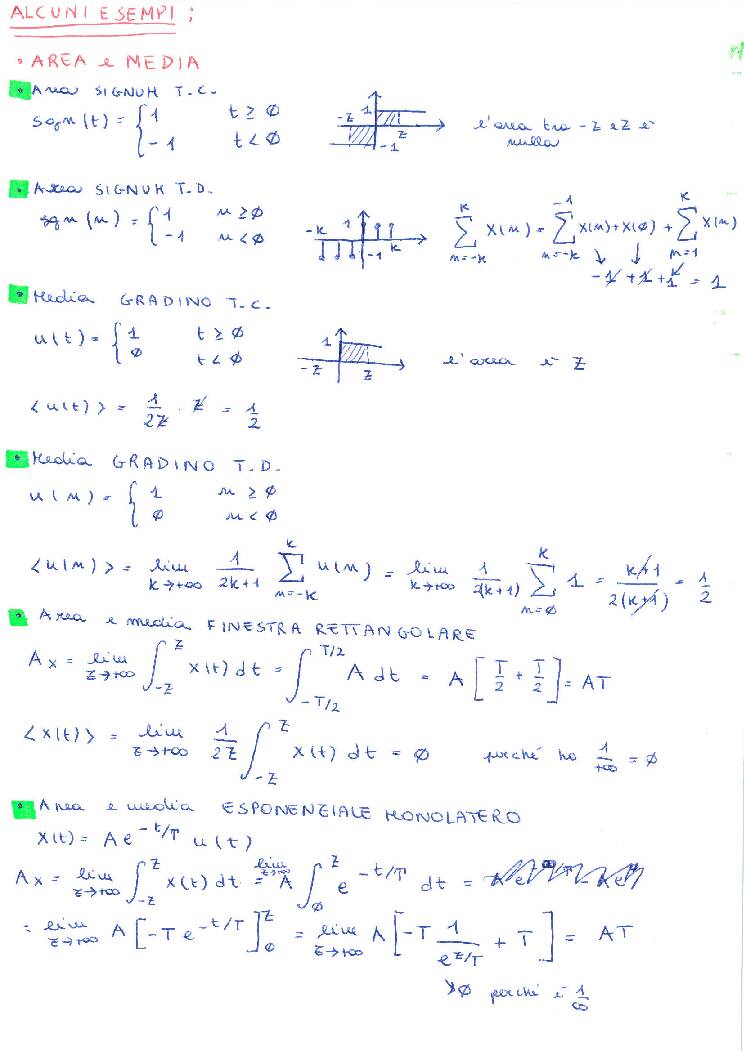 ALCUNI ESEMPI ;
• AREA e MEDIA
• Area SIGNUM T.C.
sgn(t) = { 1 t ≥ ∅
-1 t < ∅
1 -Z Z -1
l'area tra -Z e Z è nulla
• Area SIGNUM T.D.
sgn(n) = { 1 n ≥ ∅
-1 n < ∅
-K 1 K -1
∑_{n=-K}^{K} X(n) = ∑_{n=-K}^{-1} X(n) + X(∅) + ∑_{n=1}^{K} X(n)
-1 + 1 + 1 = 1
• Media GRADINO T.C.
u(t) = { 1 t ≥ ∅
∅ t < ∅
1 -Z Z
l'area è Z
<u(t)> = 1/2Z · Z = 1/2
• Media GRADINO T.D.
u(n) = { 1 n ≥ ∅
∅ n < ∅
<u(n)> = lim_{K→+∞} 1/(2K+1) ∑_{n=-K}^{K} u(n) = lim_{K→+∞} 1/(2(K+1)) ∑_{n=∅}^{K} 1 = (K+1)/(2(K+1)) = 1/2
• Area e media FINESTRA RETTANGOLARE
Ax = lim_{Z→+∞} ∫_{-Z}^{Z} x(t) dt = ∫_{-T/2}^{T/2} A dt = A [T/2 + T/2] = AT
<X(t)> = lim_{Z→+∞} 1/2Z ∫_{-Z}^{Z} X(t) dt = ∅ perché ho 1/+∞ = ∅
• Area e media ESPONENZIALE MONOLATERO
X(t) = A e^{-t/T} u(t)
Ax = lim_{Z→+∞} ∫_{-Z}^{Z} X(t) dt = lim_{Z→+∞} A ∫_{∅}^{Z} e^{-t/T} dt =
= lim_{Z→+∞} A [-T e^{-t/T}]_{∅}^{Z} = lim_{Z→+∞} A [-T 1/e^{Z/T} + T] = AT
↘∅ perché è 1/∞